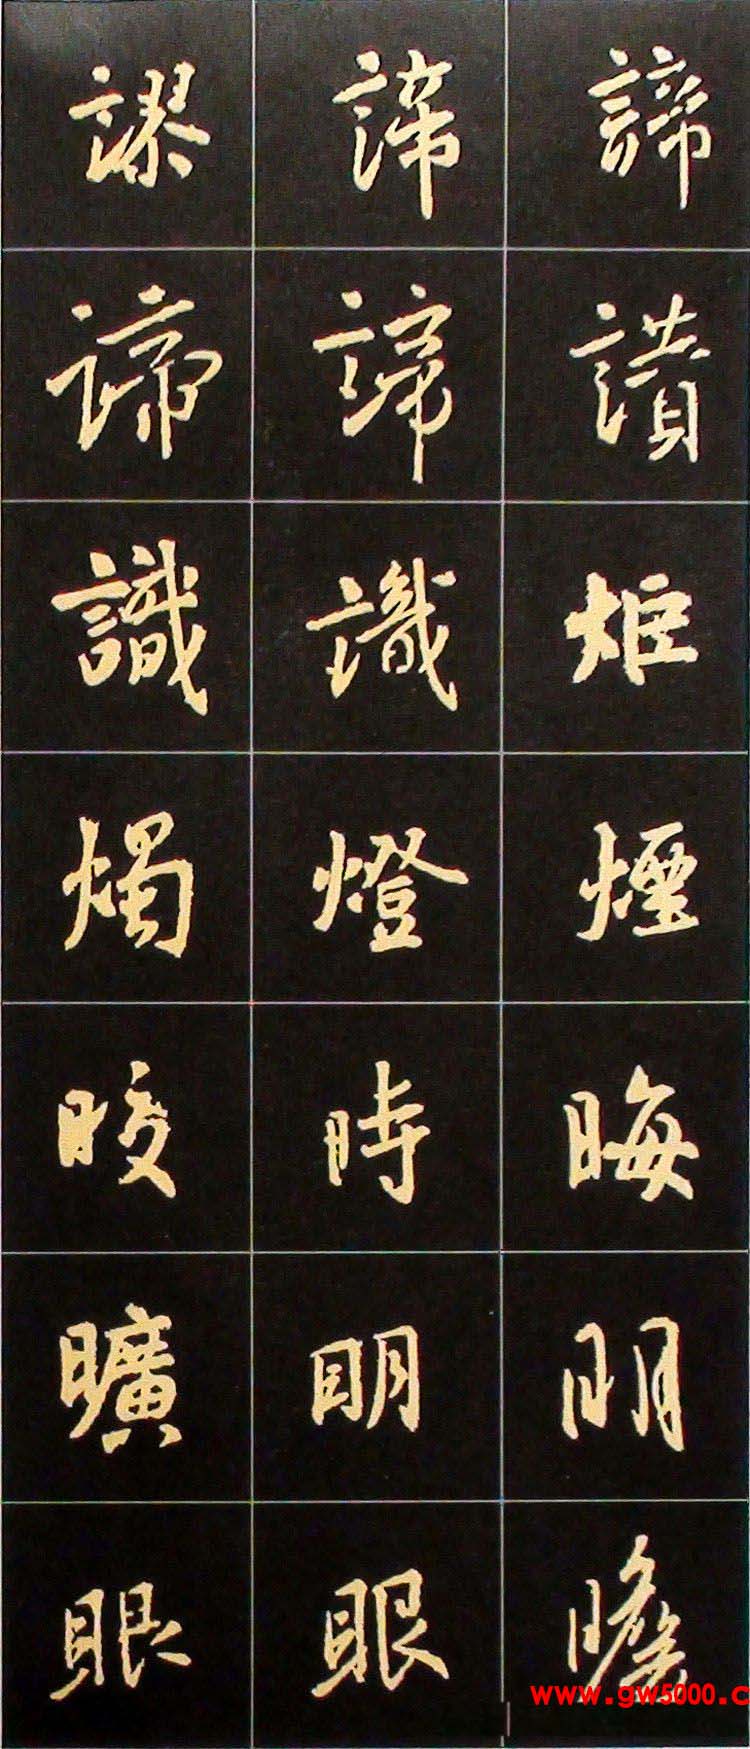 謬 諦 諦
諦 諦
識 識 炬
燭 燈 煙
時 晦
曠 明 明
眼 眼 瞻
www.gw5000.c